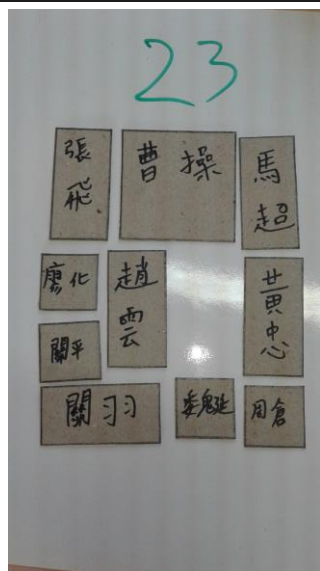 23
張飛
曹操
馬超
廖化
趙雲
黃忠
關平
關羽
魏延
周倉